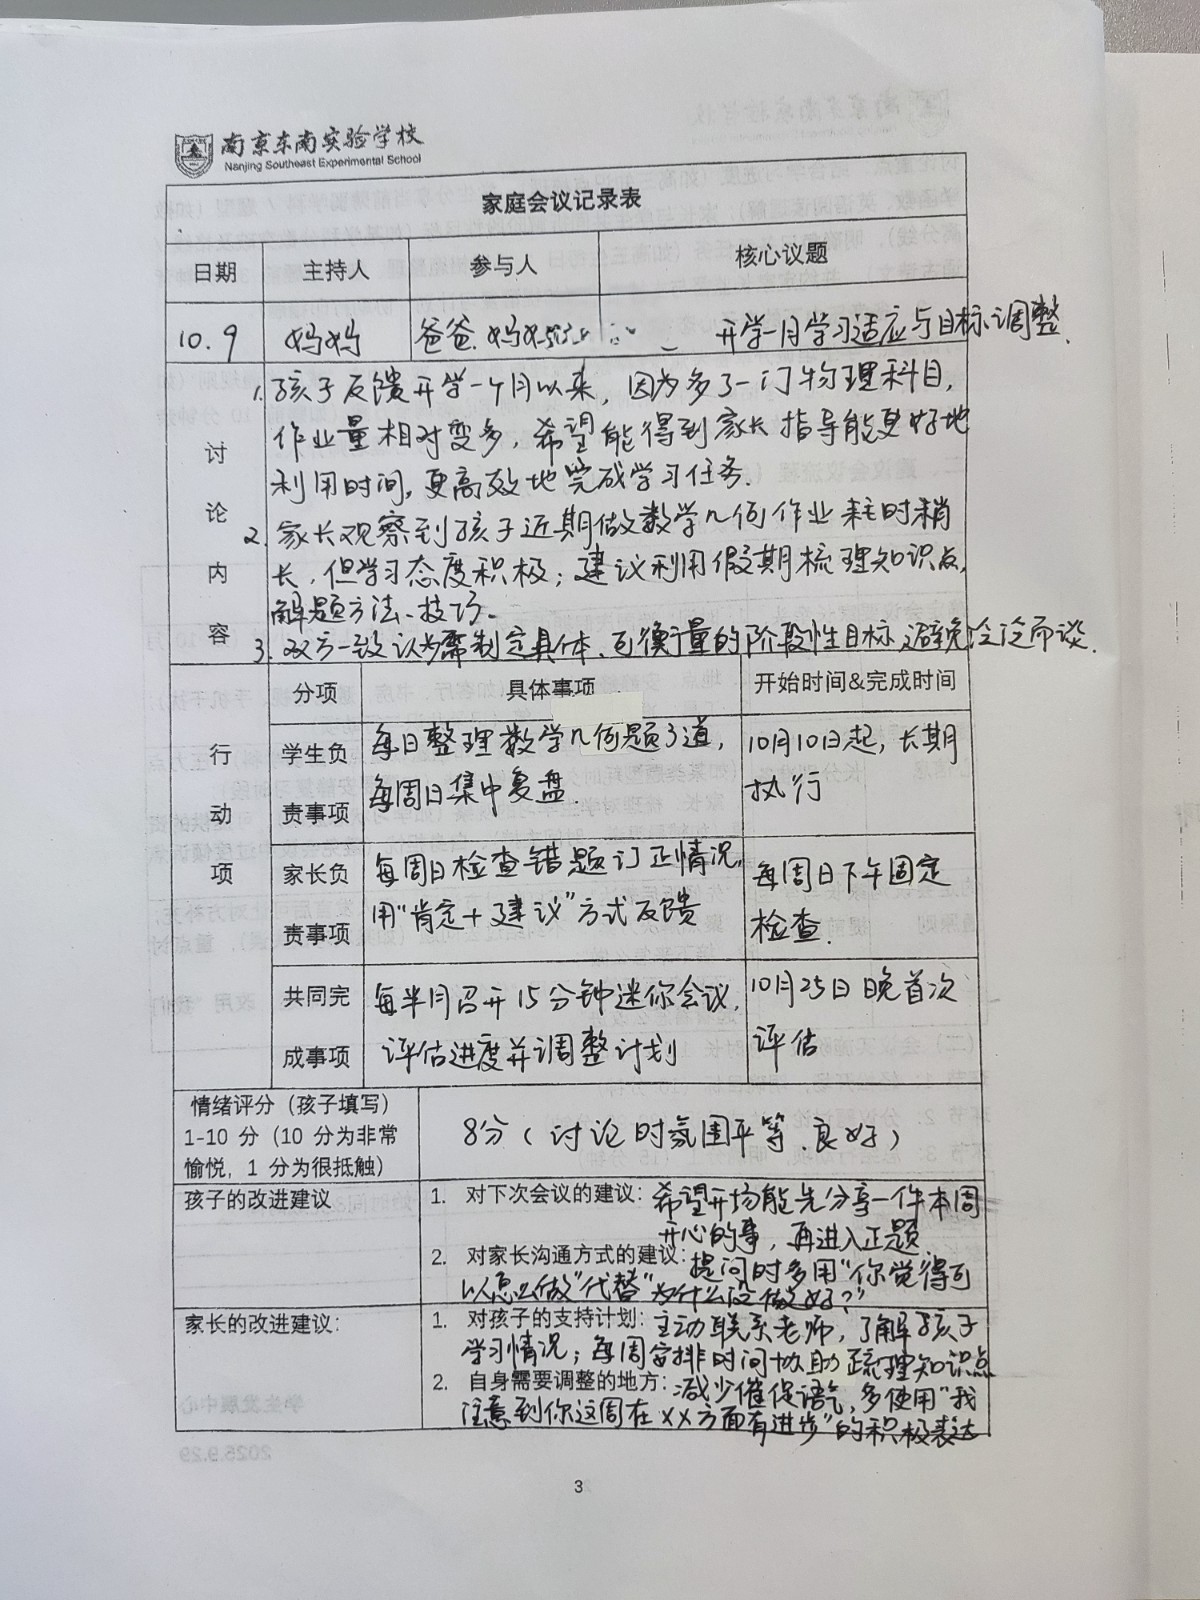 南京东南实验学校
Nanjing Southeast Experimental School
家庭会议记录表
日期 主持人 参与人 核心议题
10.9 妈妈 爸爸、妈妈 开学一月学习适应与目标调整
讨论内容
1. 孩子反馈开学一个月以来，因为多了一门物理科目，
作业量相对变多，希望能得到家长指导能更好地
利用时间，更高效地完成学习任务.
2. 家长观察到孩子近期做数学几何作业耗时稍
长，但学习态度积极；建议利用假期梳理知识点，
解题方法、技巧。
3. 双方一致认为需制定具体、可衡量的阶段性目标，避免泛泛而谈.
行动项
分项 具体事项 开始时间&完成时间
学生负 每日整理数学几何题3道， 10月10日起，长期
责事项 每周日集中复盘 执行
家长负 每周日检查错题订正情况， 每周日下午固定
责事项 用“肯定+建议”方式反馈 检查.
共同完 每半月召开15分钟迷你会议， 10月25日晚首次
成事项 评估进度并调整计划 评估
情绪评分（孩子填写）
1-10 分（10 分为非常
愉悦，1 分为很抵触）
8分（讨论时氛围平等、良好）
孩子的改进建议
1. 对下次会议的建议：希望开场能先分享一件本周
开心的事，再进入正题
2. 对家长沟通方式的建议：提问时多用“你觉得可
以怎么做”代替“为什么没做好？”
家长的改进建议：
1. 对孩子的支持计划：主动联系老师，了解孩子
学习情况；每周安排时间协助疏理知识点
2. 自身需要调整的地方：减少催促语气，多使用“我
注意到你这周在××方面有进步”的积极表达
3